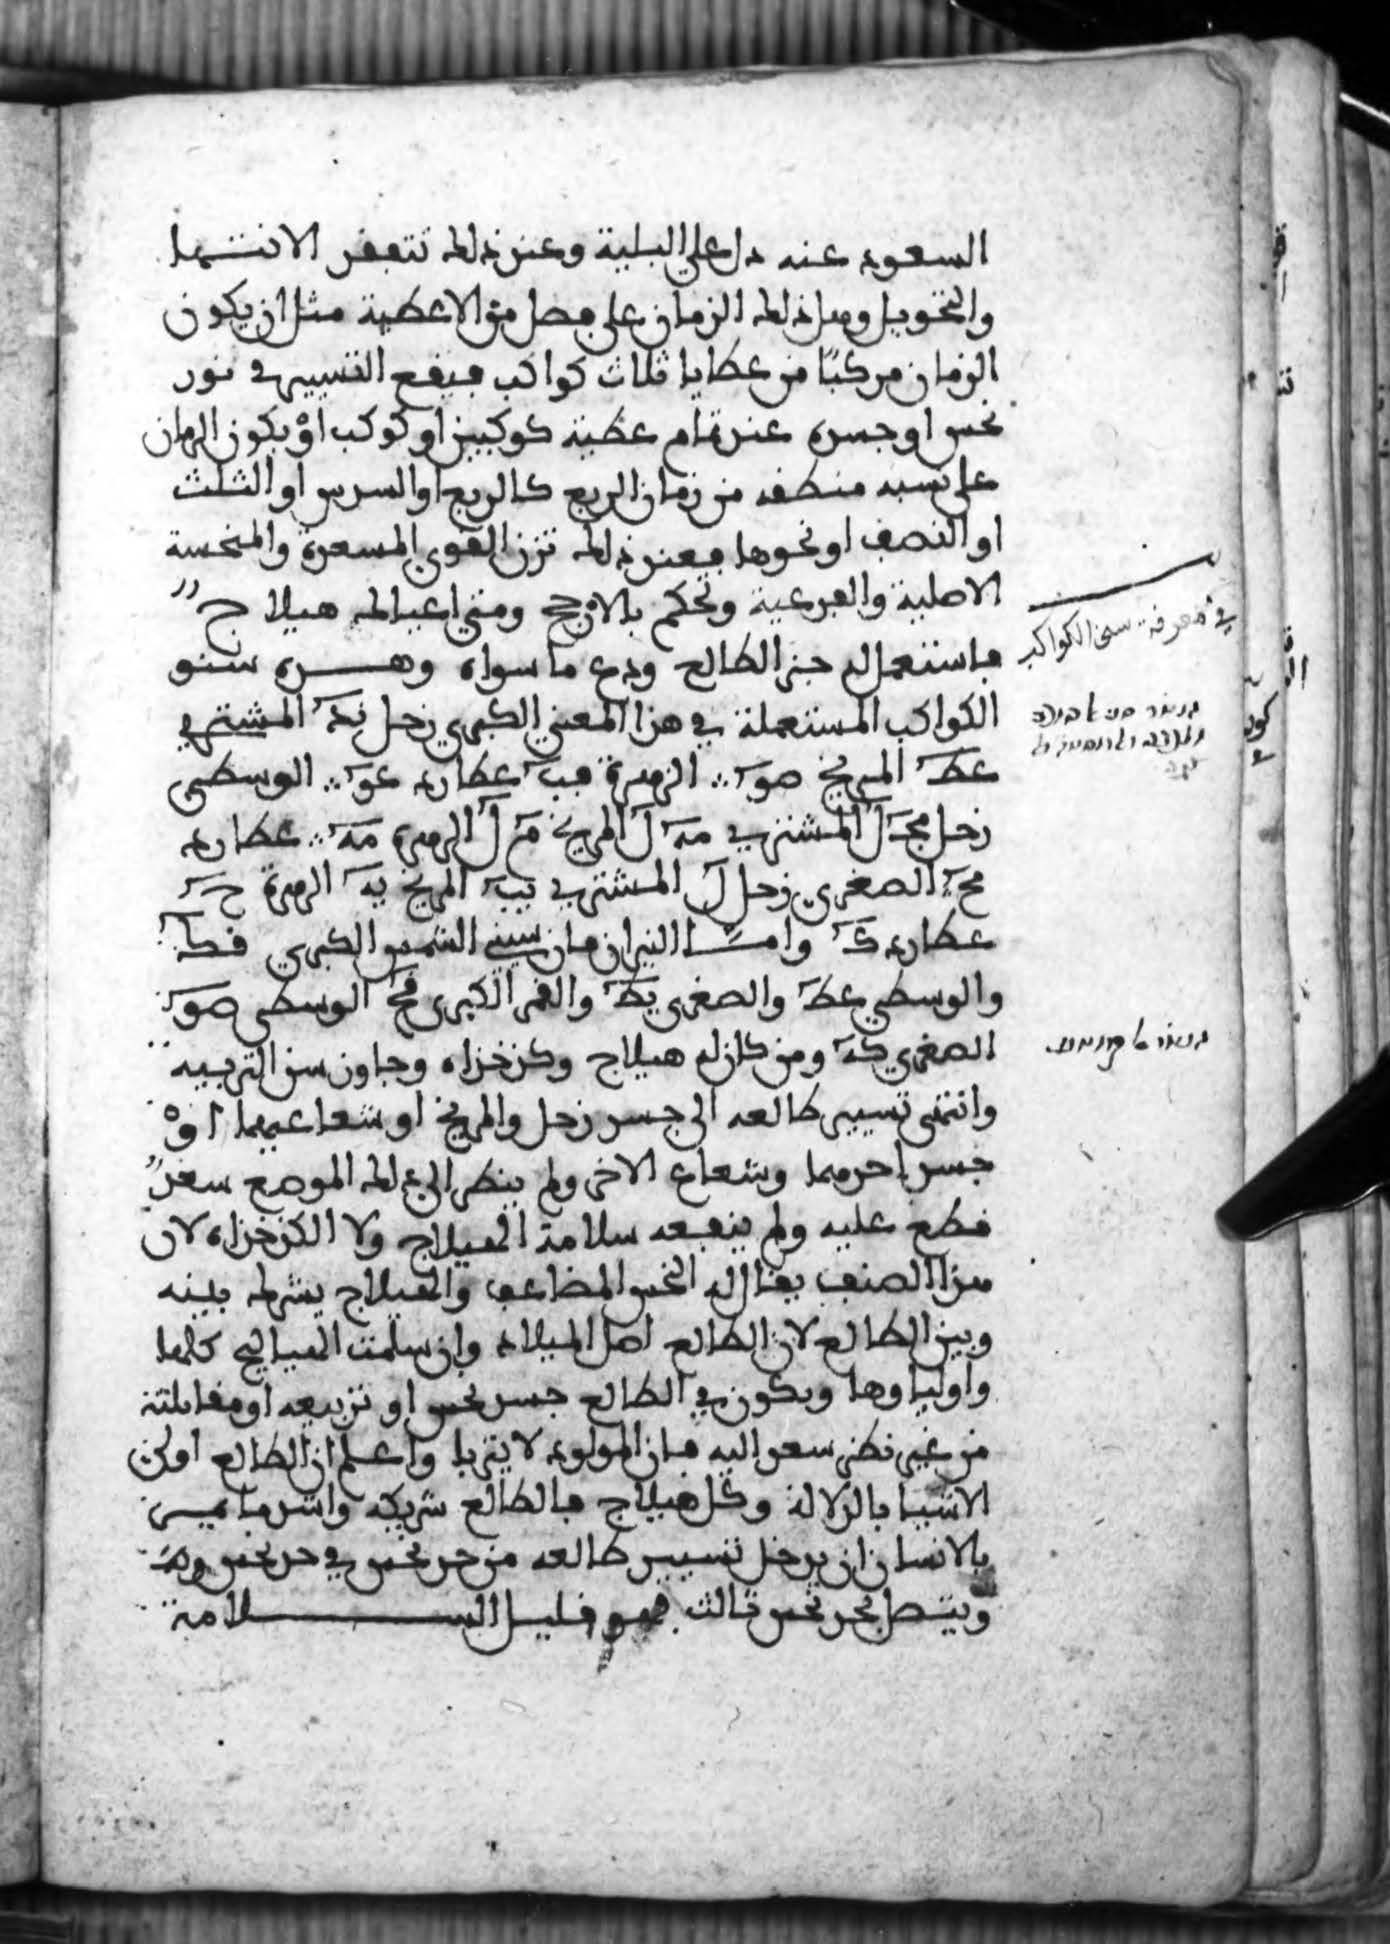 السعود عنه دل على البلية وعند ذلك تتفقد الانتها
والتحويل وصل ذلك الزمان على فصل من الاعطية مثل ان يكون
الزمان مركبًا من عطايا ثلاث كواكب فيقع التسيير في نور
نحس او جسده عند تمام عطية كوكبين او كوكب اوْ يكون الزمان
على نسبه منطقه من زمان الربع كالربع او السدس او الثلث
او النصف او نحوها فعند ذلك تزن القوى المسعدة والمنحسة
الاصلية والفرعية وتحكم بالارجح ومتى اعيا لك هيلاج
فاستعمل له جز الطالع ودع ما سواه وهذه سنو
الكواكب المستعملة في هذا المعنى الكبرى زحل نز المشتري
عط المريخ صو الزهرة فب عطارد عو الوسطى
زحل مج ل المشتري مه ل المريخ م ل الزهرة مه عطارد
مح الصغرى زحل ل المشتري يب المريخ يه الزهرة ح
عطارد ك واما النيران فان سني الشمس الكبرى قك
والوسطى عط والصغرى يط والقمر الكبرى قح الوسطى صو
الصغرى كه ومن كان له هيلاج وكذخذاه وجاوز سن التربيه
وانتهى تسيير طالعه الى جسد زحل والمريخ او شعاعيهما اوْ
جسد احدهما وشعاع الاخر ولم ينظر الى ذلك الموضع سعد
قطع عليه ولم ينفعه سلامة الهيلاج ولا الكذخذاه لان
هذا الصنف يقال له النحس المضاعف والهيلاج يشرك بينه
وبين الطالع لان الطالع اصل الميلاد وان سلمت الهياليج كلها
واولياوها ويكون في الطالع جسد نحس او تربيعه او مقابلته
من غير نظر سعد اليه فان المولود لا يتربا واعلم ان الطالع اولى
الاشيا بالدلالة وكل هيلاج فالطالع شريكه واشد ما يمر
بالانسان ان يدخل تسيير طالعه من حد نحس في حد نحس
ويتصل بحد نحس ثالث فهو قليل السلامة
في معرفة سني الكواكب